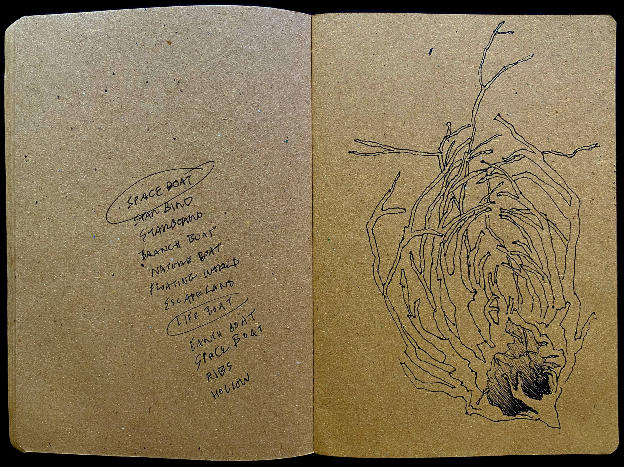 SPACE BOAT
STAR BIRD
STARBOARD
BRANCH BOAT
NATURE BOAT
FLOATING WORLD
ESCAPELAND
LIFE BOAT
EARTH BOAT
SPACE BOAT
RIBS
HOLLOW